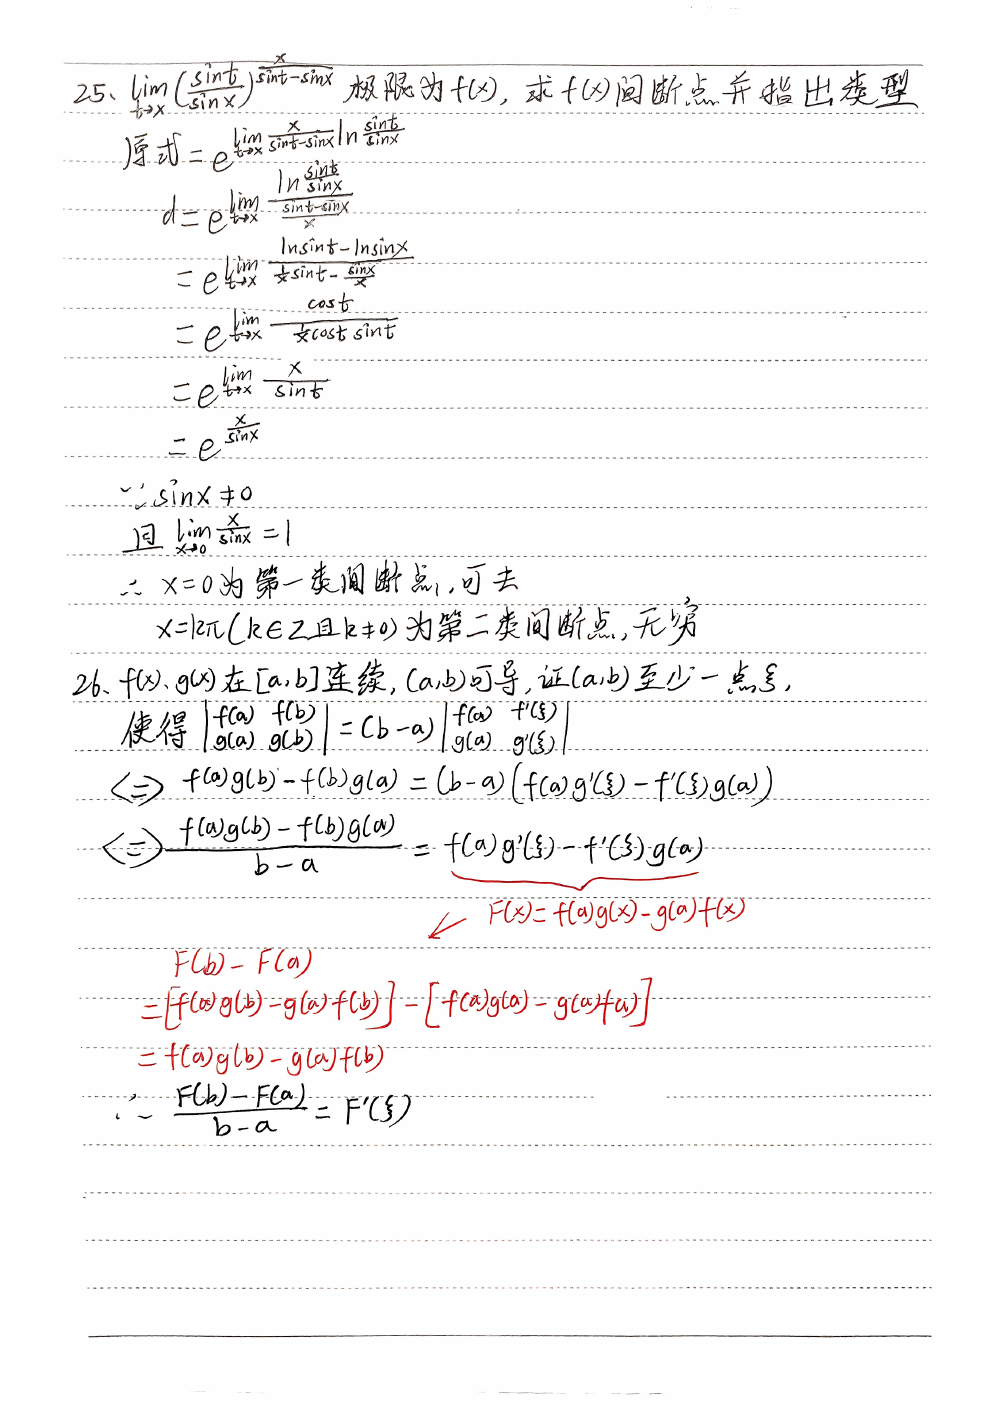 25、lim_{t→x} (sint/sinx)^{x/(sint-sinx)} 极限为f(x), 求f(x)间断点并指出类型
原式 = e^{lim_{t→x} x/(sint-sinx) ln sint/sinx}
d = e^{lim_{t→x} (ln sint/sinx)/((sint-sinx)/x)}
= e^{lim_{t→x} (lnsint-lnsinx)/(1/x sint - sinx/x)}
= e^{lim_{t→x} cost/(1/x cost sint)}
= e^{lim_{t→x} x/sint}
= e^{x/sinx}
∵ sinx≠0
且 lim_{x→0} x/sinx = 1
∴ x=0为第一类间断点,可去
x=kπ(k∈Z且k≠0)为第二类间断点,无穷
26、f(x)、g(x)在[a,b]连续,(a,b)可导,证(a,b)至少一点ξ,
使得 |f(a) f(b); g(a) g(b)| = (b-a) |f(a) f'(ξ); g(a) g'(ξ)|
<=> f(a)g(b)-f(b)g(a) = (b-a)(f(a)g'(ξ)-f'(ξ)g(a))
<=> (f(a)g(b)-f(b)g(a))/(b-a) = f(a)g'(ξ)-f'(ξ)g(a)
F(x)=f(a)g(x)-g(a)f(x)
F(b)-F(a)
=[f(a)g(b)-g(a)f(b)]-[f(a)g(a)-g(a)f(a)]
=f(a)g(b)-g(a)f(b)
∴ (F(b)-F(a))/(b-a) = F'(ξ)